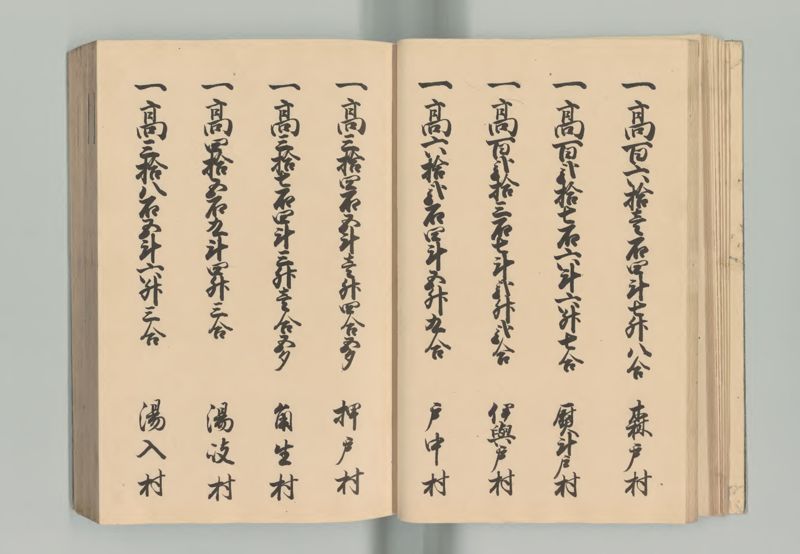 一高百六拾壱石四斗七升八合 森戸村
一高百弐拾七石六斗六升七合 熨斗戸村
一高百弐拾三石七斗弐升弐合 伊與戸村
一高六拾弐石四斗五升九合 戸中村
一高三拾四石五斗壱升四合五夕 押戸村
一高三拾七石四斗三升壱合五夕 角生村
一高四拾五石九斗四升三合 湯岐村
一高三拾八石五斗六升三合 湯入村